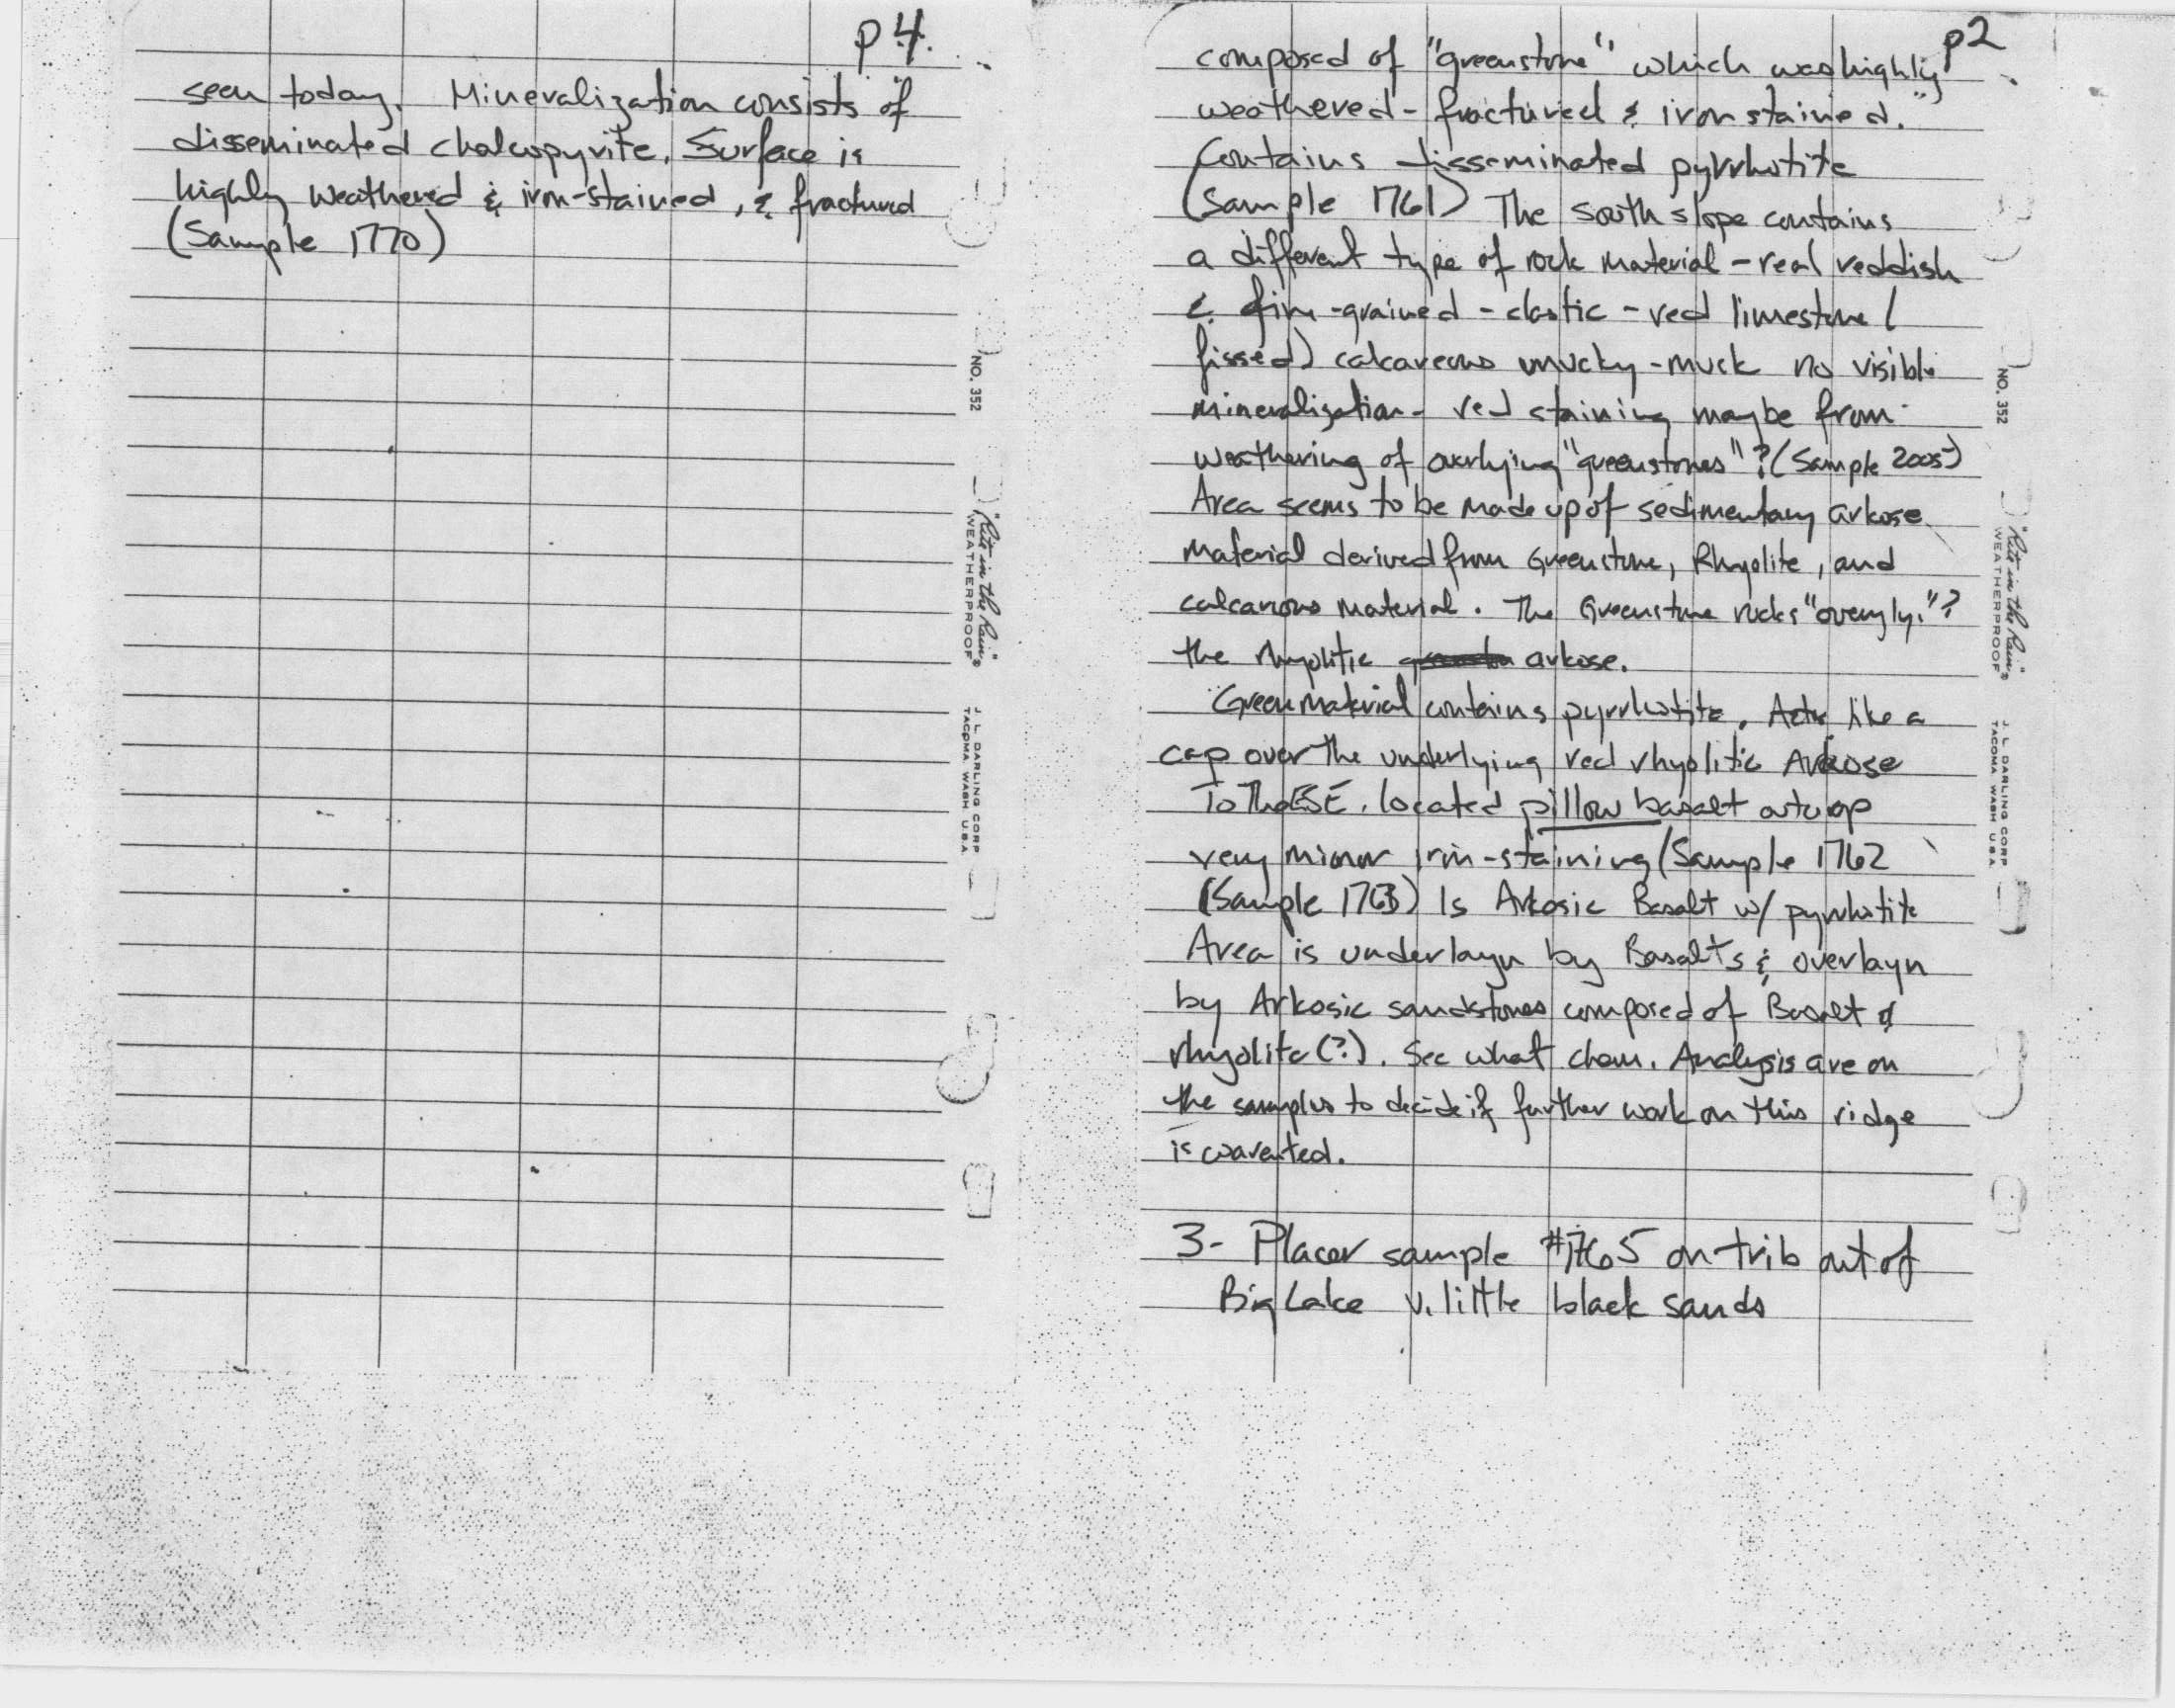 p 4.
seen today. Mineralization consists of
disseminated chalcopyrite. Surface is
highly weathered & iron-stained, & fractured
(Sample 1770)
NO. 352
"Rite in the Rain"
WEATHERPROOF®
J. L. DARLING CORP
TACOMA WASH U.S.A.
p2
composed of "greenstone" which was highly
weathered - fractured & iron stained."
Contains disseminated pyrrhotite
(Sample 1761) The south slope contains
a different type of rock material - real reddish
& fine-grained - clastic - red limestone (
fissed) calcareous mucky-muck no visible
mineralization - red staining maybe from
weathering of overlying "greenstones"? (Sample 2005)
Area seems to be made up of sedimentary arkose
material derived from Greenstone, Rhyolite, and
calcarious material. The Greenstone rocks "overyly."?
the rhyolitic arkose.
Green material contains pyrrhotite. Acts like a
cap over the underlying red rhyolitic Arkose
To The ESE. located pillow basalt outcrop
very minor iron-staining (Sample 1762
(Sample 1763) Is Arkosic Basalt w/ pyrrhotite
Area is underlayn by Basalts & overlayn
by Arkosic sandstones composed of Basalt &
rhyolite (?). See what chem. Analysis are on
the samples to decide if further work on this ridge
is warented.
3- Placer sample #1765 on trib out of
Big Lake v. little black sands
NO. 352
"Rite in the Rain"
WEATHERPROOF®
J. L. DARLING CORP
TACOMA WASH U.S.A.